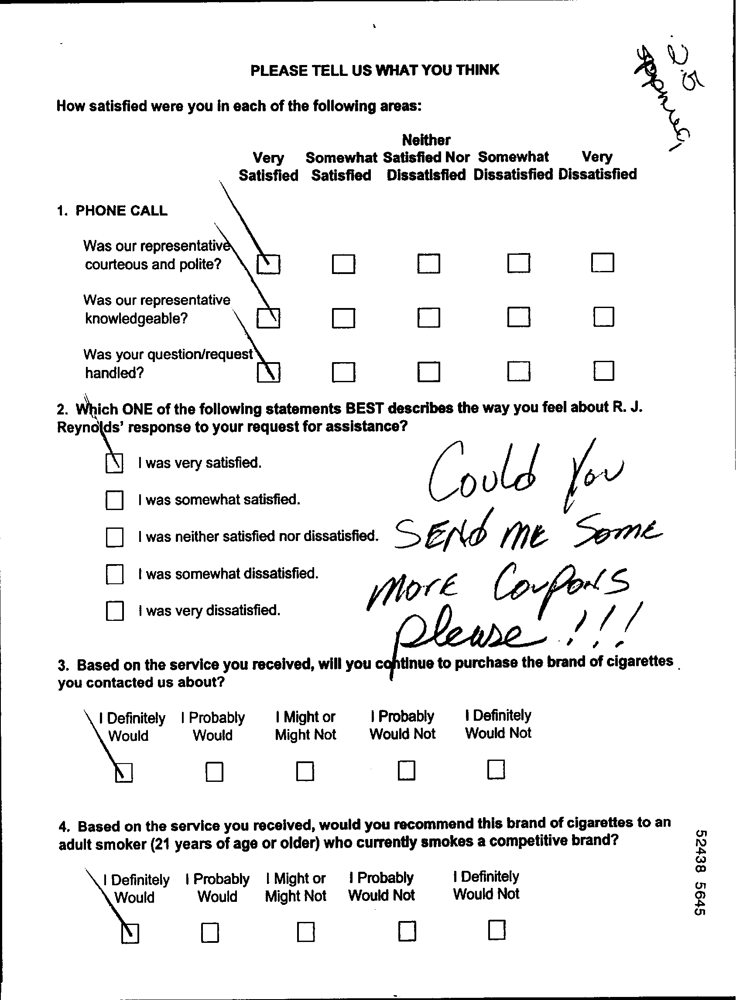 PLEASE TELL US WHAT YOU THINK
2.5
How satisfied were you in each of the following areas:
Neither
Very Somewhat Satisfied Nor Somewhat Very
Satisfied Satisfied Dissatisfied Dissatisfied Dissatisfied
1. PHONE CALL
Was our representative
courteous and polite?
Was our representative
knowledgeable?
Was your question/request
handled?
2. Which ONE of the following statements BEST describes the way you feel about R. J.
Reynolds' response to your request for assistance?
I was very satisfied.
I was somewhat satisfied.
I was neither satisfied nor dissatisfied.
I was somewhat dissatisfied.
I was very dissatisfied.
Could You
SEND ME Some
MORE Coupons
please!!!
3. Based on the service you received, will you continue to purchase the brand of cigarettes
you contacted us about?
I Definitely I Probably I Might or I Probably I Definitely
Would Would Might Not Would Not Would Not
4. Based on the service you received, would you recommend this brand of cigarettes to an
adult smoker (21 years of age or older) who currently smokes a competitive brand?
I Definitely I Probably I Might or I Probably I Definitely
Would Would Might Not Would Not Would Not
52438 5645